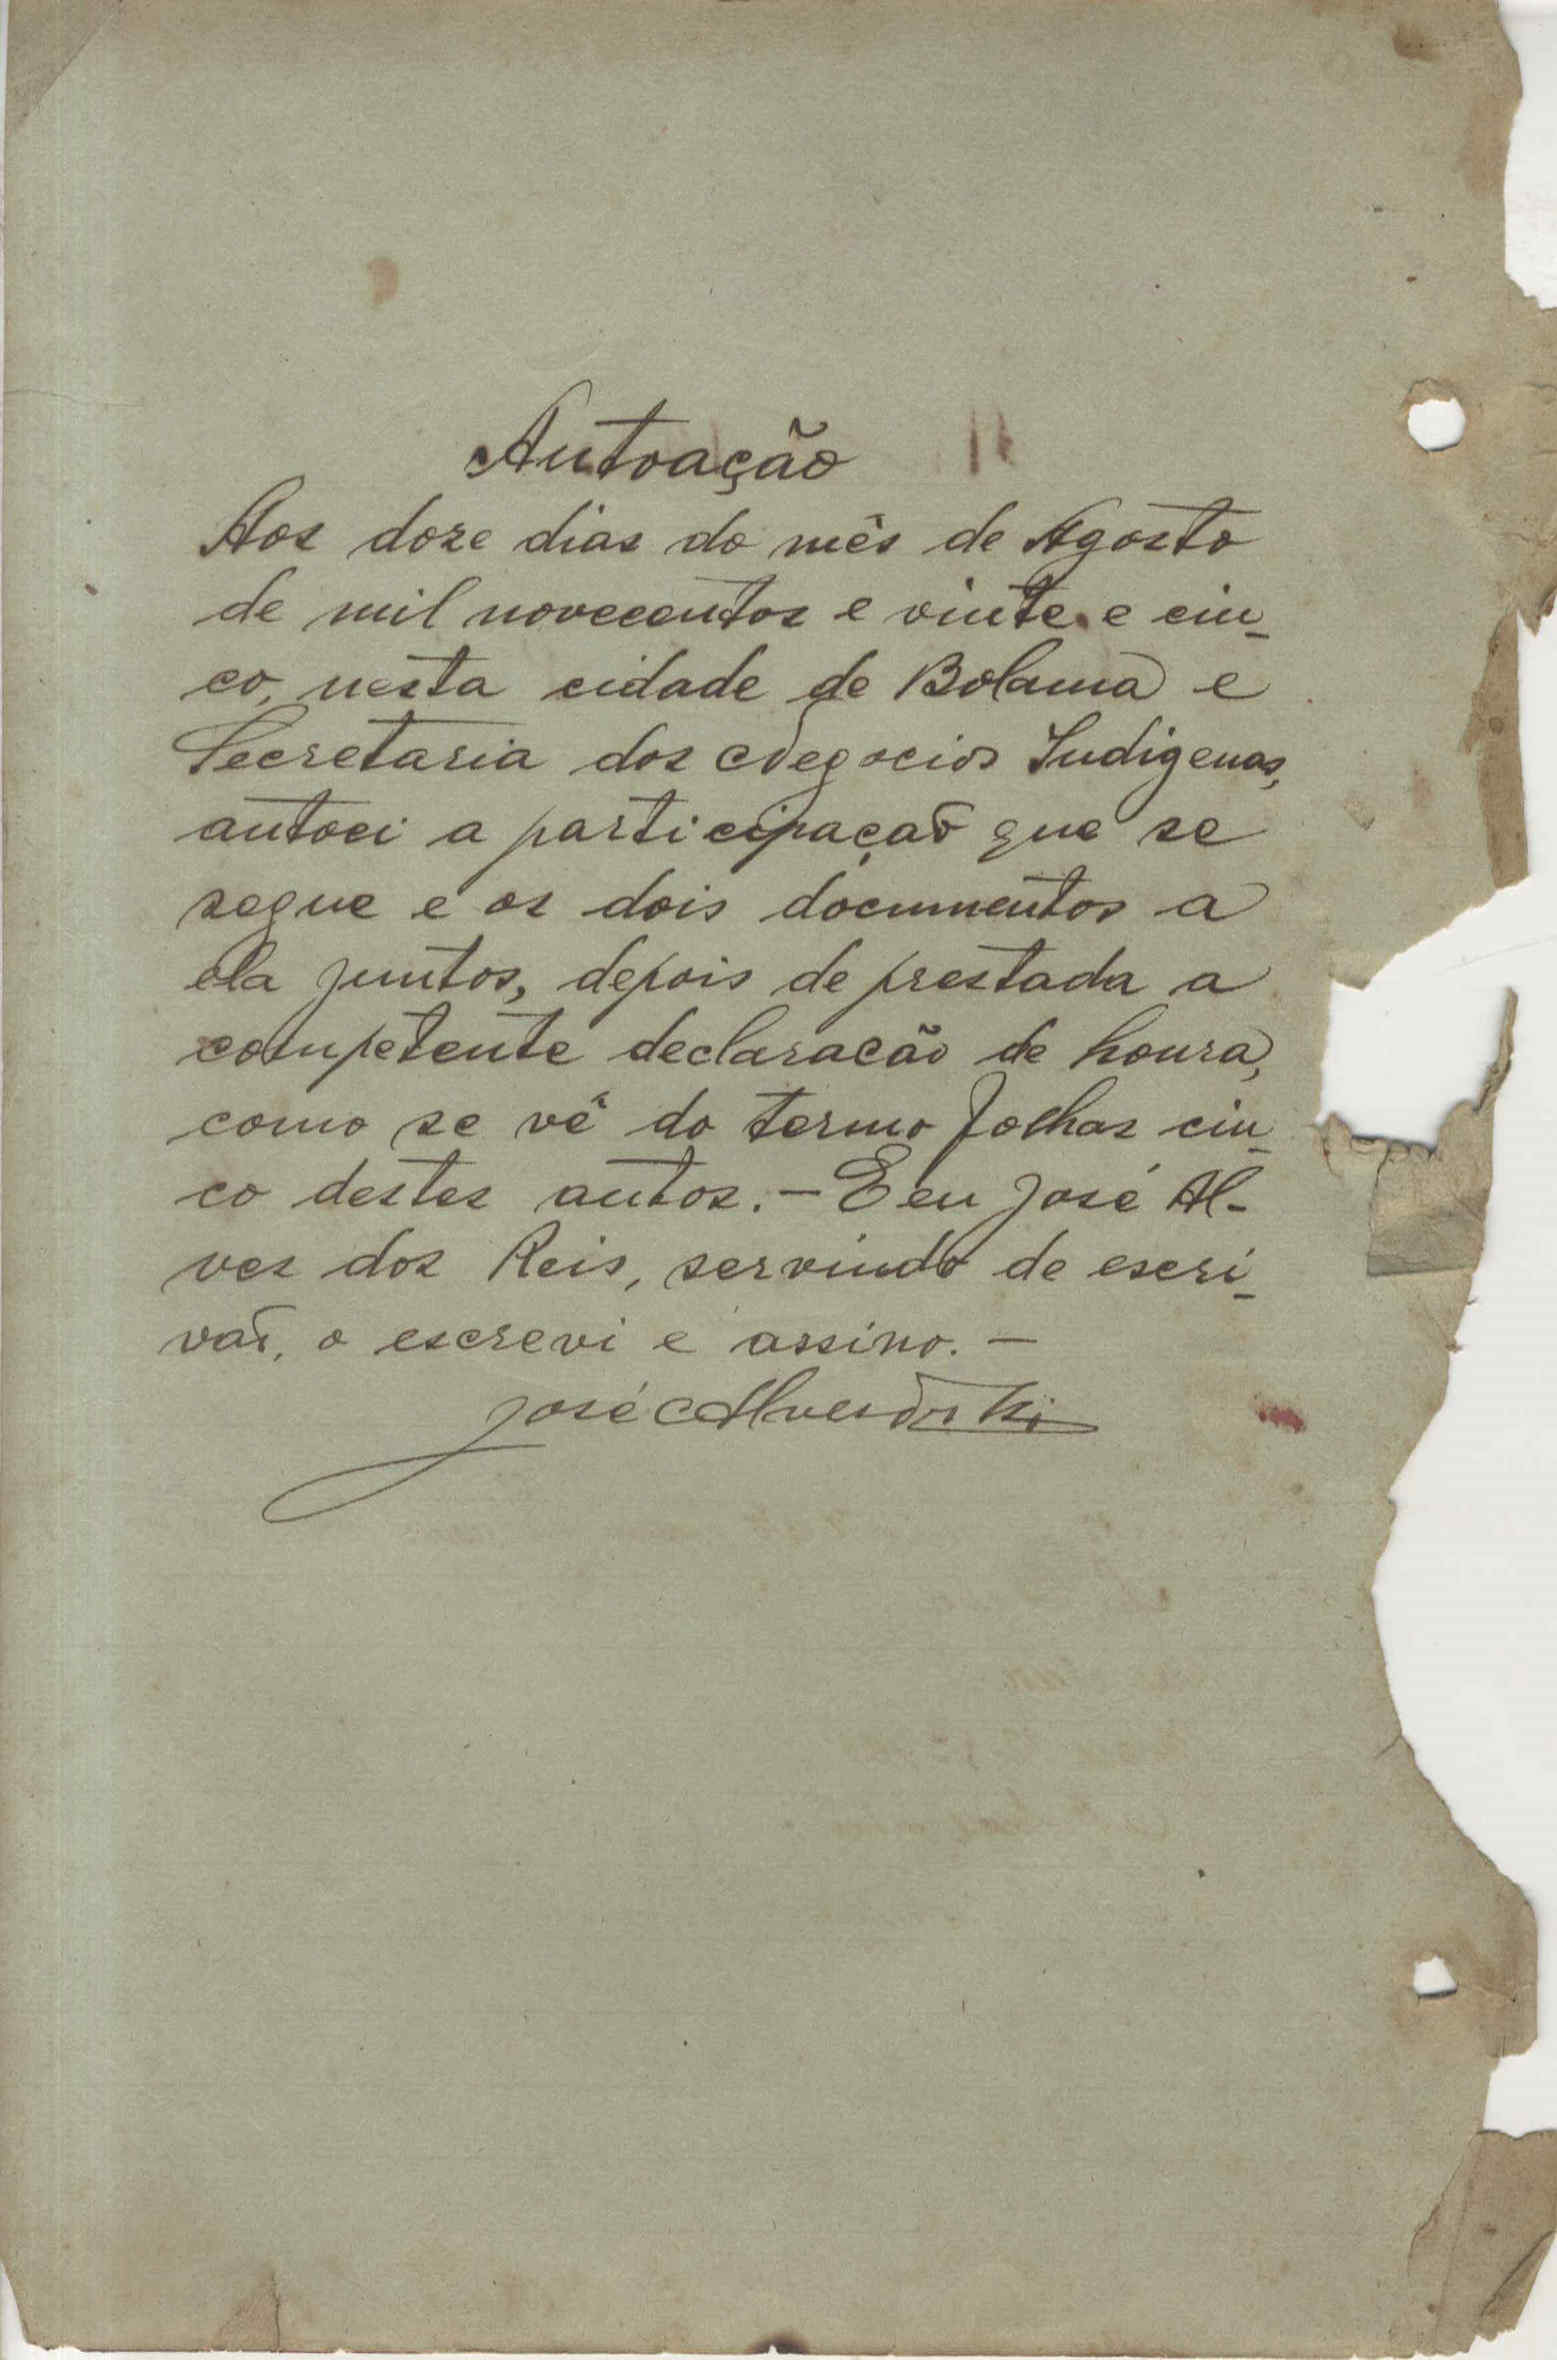 Autoação
Aos doze dias do mês de Agosto
de mil novecentos e vinte e cin_
co, nesta cidade de Bolama e
Secretaria dos Negocios Indigenas,
autoei a participação que se
segue e os dois documentos a
ela juntos, depois de prestada a
competente declaracão de honra,
como se vê do termo folhas cin_
co destes autos. — E eu José Al-
ves dos Reis, servindo de escri_
vaõ, o escrevi e assino. —
José Alves dos Reis